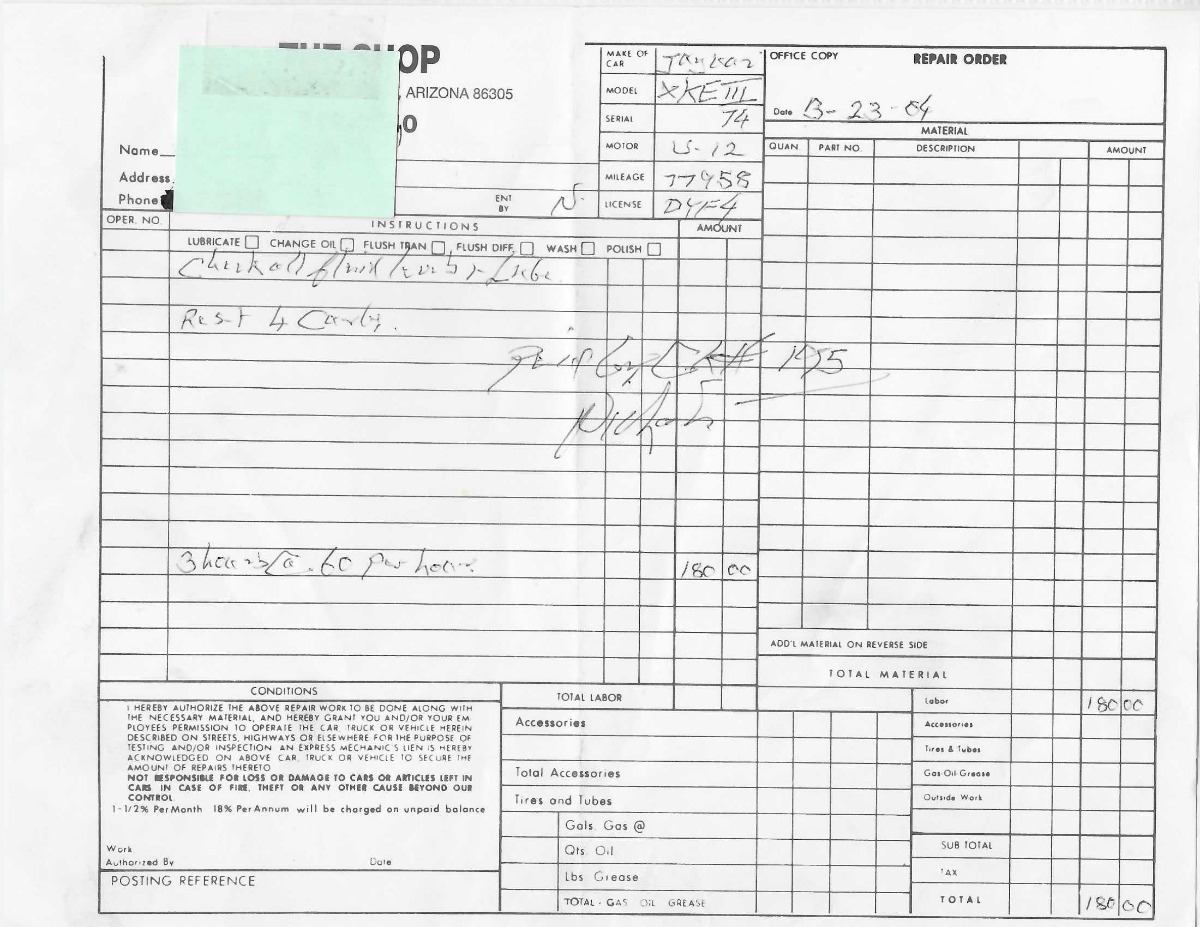 THE SHOP
, ARIZONA 86305
Name
Address
Phone
ENT BY N
MAKE OF CAR Jaguar
MODEL XKE III
SERIAL 74
MOTOR V-12
MILEAGE 77958
LICENSE DYF4
OFFICE COPY REPAIR ORDER
Date -23-04
MATERIAL
QUAN. PART NO. DESCRIPTION AMOUNT
OPER. NO. INSTRUCTIONS AMOUNT
LUBRICATE CHANGE OIL FLUSH TRAN. FLUSH DIFF. WASH POLISH
Check all fluid levels Lube
Reset 4 Carbs.
Paid by CK# 1475
3 hours @ .60 per hour 180 00
ADD'L MATERIAL ON REVERSE SIDE
TOTAL MATERIAL
CONDITIONS
I HEREBY AUTHORIZE THE ABOVE REPAIR WORK TO BE DONE ALONG WITH
THE NECESSARY MATERIAL, AND HEREBY GRANT YOU AND/OR YOUR EM-
PLOYEES PERMISSION TO OPERATE THE CAR, TRUCK OR VEHICLE HEREIN
DESCRIBED ON STREETS, HIGHWAYS OR ELSEWHERE FOR THE PURPOSE OF
TESTING AND/OR INSPECTION AN EXPRESS MECHANIC'S LIEN IS HEREBY
ACKNOWLEDGED ON ABOVE CAR, TRUCK OR VEHICLE TO SECURE THE
AMOUNT OF REPAIRS THERETO
NOT RESPONSIBLE FOR LOSS OR DAMAGE TO CARS OR ARTICLES LEFT IN
CARS IN CASE OF FIRE, THEFT OR ANY OTHER CAUSE BEYOND OUR
CONTROL
1-1/2% Per Month 18% Per Annum will be charged on unpaid balance
Work
Authorized By Date
POSTING REFERENCE
TOTAL LABOR
Accessories
Total Accessories
Tires and Tubes
Gals. Gas @
Qts. Oil
Lbs Grease
TOTAL - GAS OIL GREASE
Labor 180 00
Accessories
Tires & Tubes
Gas-Oil-Grease
Outside Work
SUB TOTAL
TAX
TOTAL 180 00